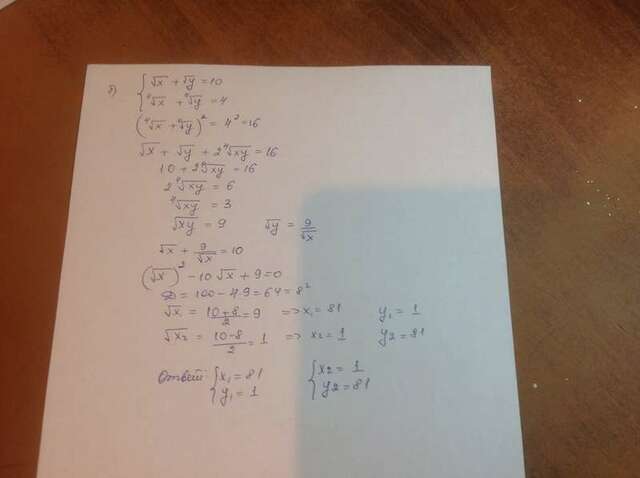 б) { √x + √y = 10
⁴√x + ⁴√y = 4
(⁴√x + ⁴√y)² = 4² = 16
√x + √y + 2⁴√xy = 16
10 + 2⁴√xy = 16
2⁴√xy = 6
⁴√xy = 3
√xy = 9 √y = 9/√x
√x + 9/√x = 10
(√x)² - 10√x + 9 = 0
D = 100 - 4·9 = 64 = 8²
√x = (10+8)/2 = 9 => x₁ = 81 y₁ = 1
√x₂ = (10-8)/2 = 1 => x₂ = 1 y₂ = 81
Ответ: { x₁ = 81 { x₂ = 1
y₁ = 1 y₂ = 81